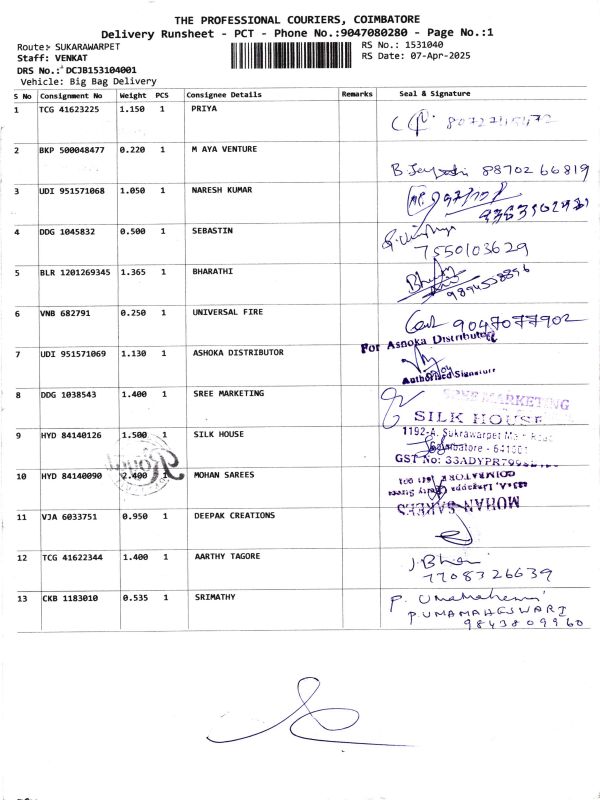 THE PROFESSIONAL COURIERS, COIMBATORE
Delivery Runsheet - PCT - Phone No.:9047080280 - Page No.:1
Route:- SUKARAWARPET RS No.: 1531040
Staff: VENKAT RS Date: 07-Apr-2025
DRS No.: DCJB153104001
Vehicle: Big Bag Delivery
S No Consignment No Weight PCS Consignee Details Remarks Seal & Signature
1 TCG 41623225 1.150 1 PRIYA
2 BKP 500048477 0.220 1 M AYA VENTURE
88702 66819
3 UDI 951571068 1.050 1 NARESH KUMAR
4 DDG 1045832 0.500 1 SEBASTIN
7550103629
5 BLR 1201269345 1.365 1 BHARATHI
6 VNB 682791 0.250 1 UNIVERSAL FIRE
9047077902
7 UDI 951571069 1.130 1 ASHOKA DISTRIBUTOR
For Ashoka Distributor
Authorised Signature
8 DDG 1038543 1.400 1 SREE MARKETING
SREE MARKETING
SILK HOUSE
9 HYD 84140126 1.500 1 SILK HOUSE
1192-A, Sukrawarpet Main Road
Coimbatore - 641001
GST No: 33ADYPR
10 HYD 84140090 2.400 1 MOHAN SAREES
COIMBATORE
MOHAN SAREES
11 VJA 6033751 0.950 1 DEEPAK CREATIONS
12 TCG 41622344 1.400 1 AARTHY TAGORE
7708326639
13 CKB 1183010 0.535 1 SRIMATHY
P. Umamaheswari
P.UMAMAHESWARI
9843809960